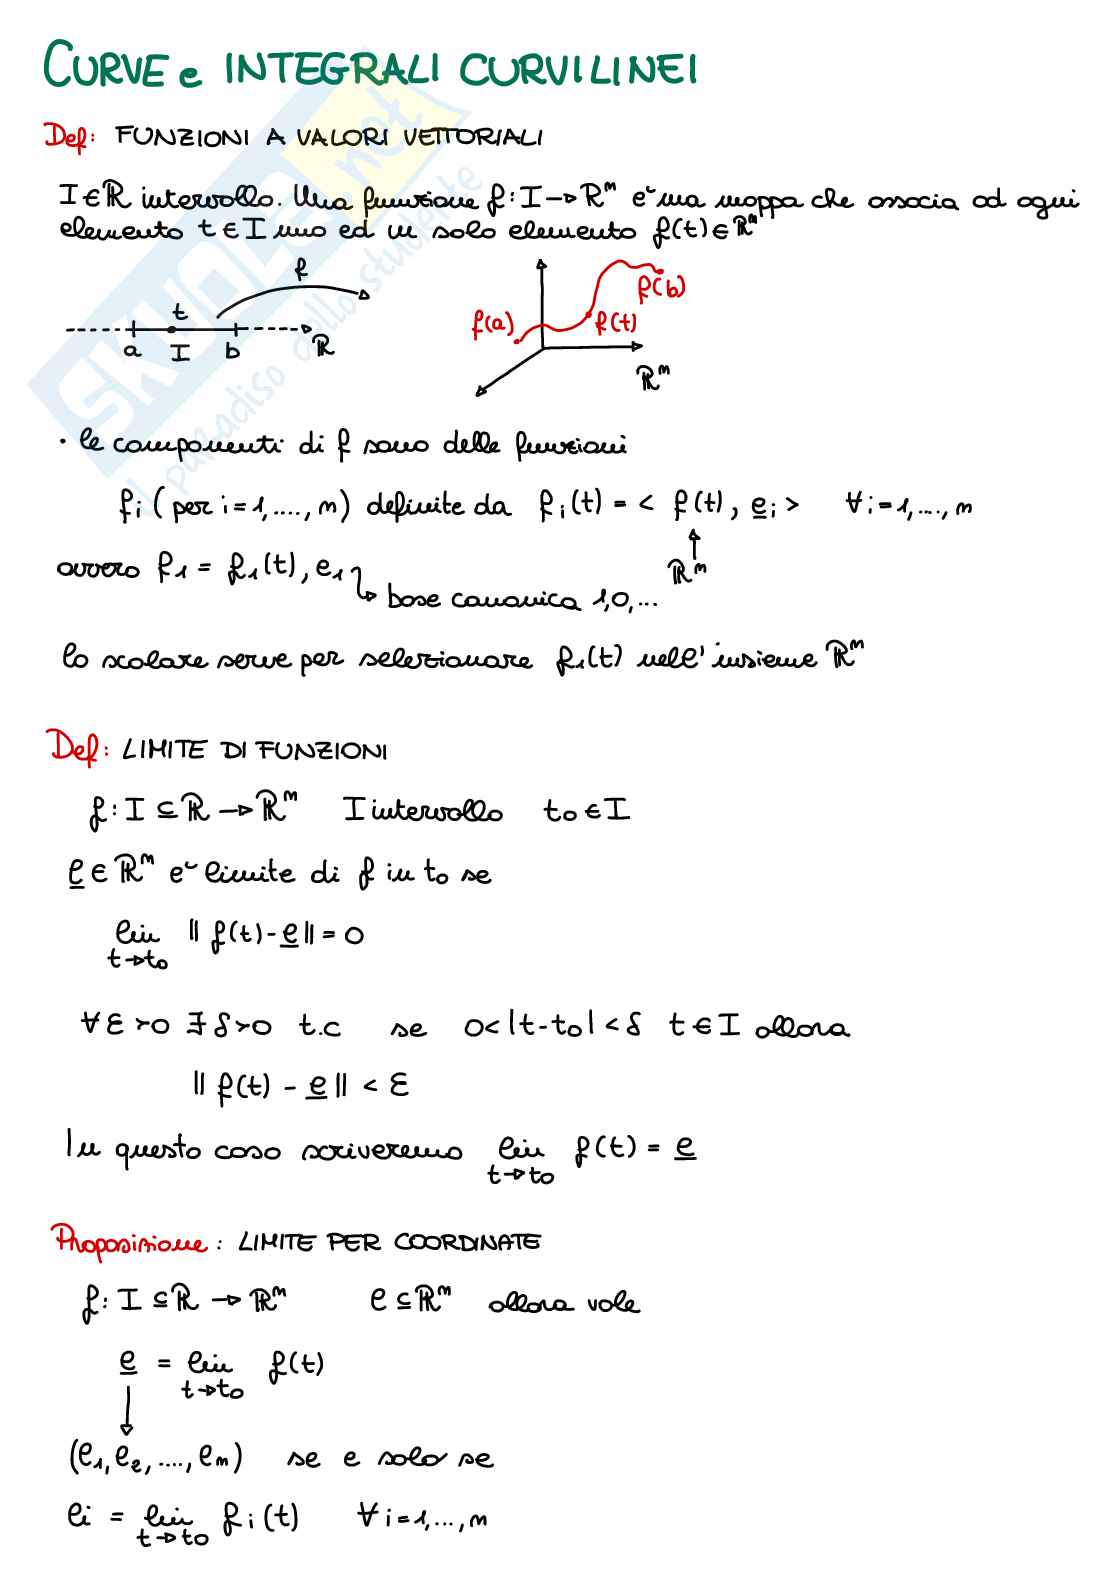 CURVE e INTEGRALI CURVILINEI
Def: FUNZIONI A VALORI VETTORIALI
I ∈ ℝ intervallo. Una funzione f: I → ℝⁿ è una mappa che associa ad ogni
elemento t ∈ I uno ed un solo elemento f(t) ∈ ℝⁿ
f
t
a I b ℝ
f(a) f(t) f(b)
ℝⁿ
• le componenti di f sono delle funzioni
fi (per i = 1, ...., n) definite da fi(t) = < f(t), e̲i > ∀ i = 1, ..., n
ovvero f1 = f1(t), e1 ℝⁿ
base canonica 1,0,...
lo scalare serve per selezionare f1(t) nell'insieme ℝⁿ
Def: LIMITE DI FUNZIONI
f: I ⊆ ℝ → ℝⁿ I intervallo t0 ∈ I
ℓ̲ ∈ ℝⁿ è limite di f in t0 se
lim t→t0 || f(t) - ℓ̲ || = 0
∀ ε > 0 ∃ δ > 0 t.c se 0 < |t - t0| < δ t ∈ I allora
|| f(t) - ℓ̲ || < ε
In questo caso scriveremo lim t→t0 f(t) = ℓ̲
Proposizione: LIMITE PER COORDINATE
f: I ⊆ ℝ → ℝⁿ ℓ ⊆ ℝⁿ allora vale
ℓ̲ = lim t→t0 f(t)
(ℓ1, ℓ2, ...., ℓn) se e solo se
ℓi = lim t→t0 fi(t) ∀ i = 1, ..., n
SKUOLA.net
il paradiso dello studente